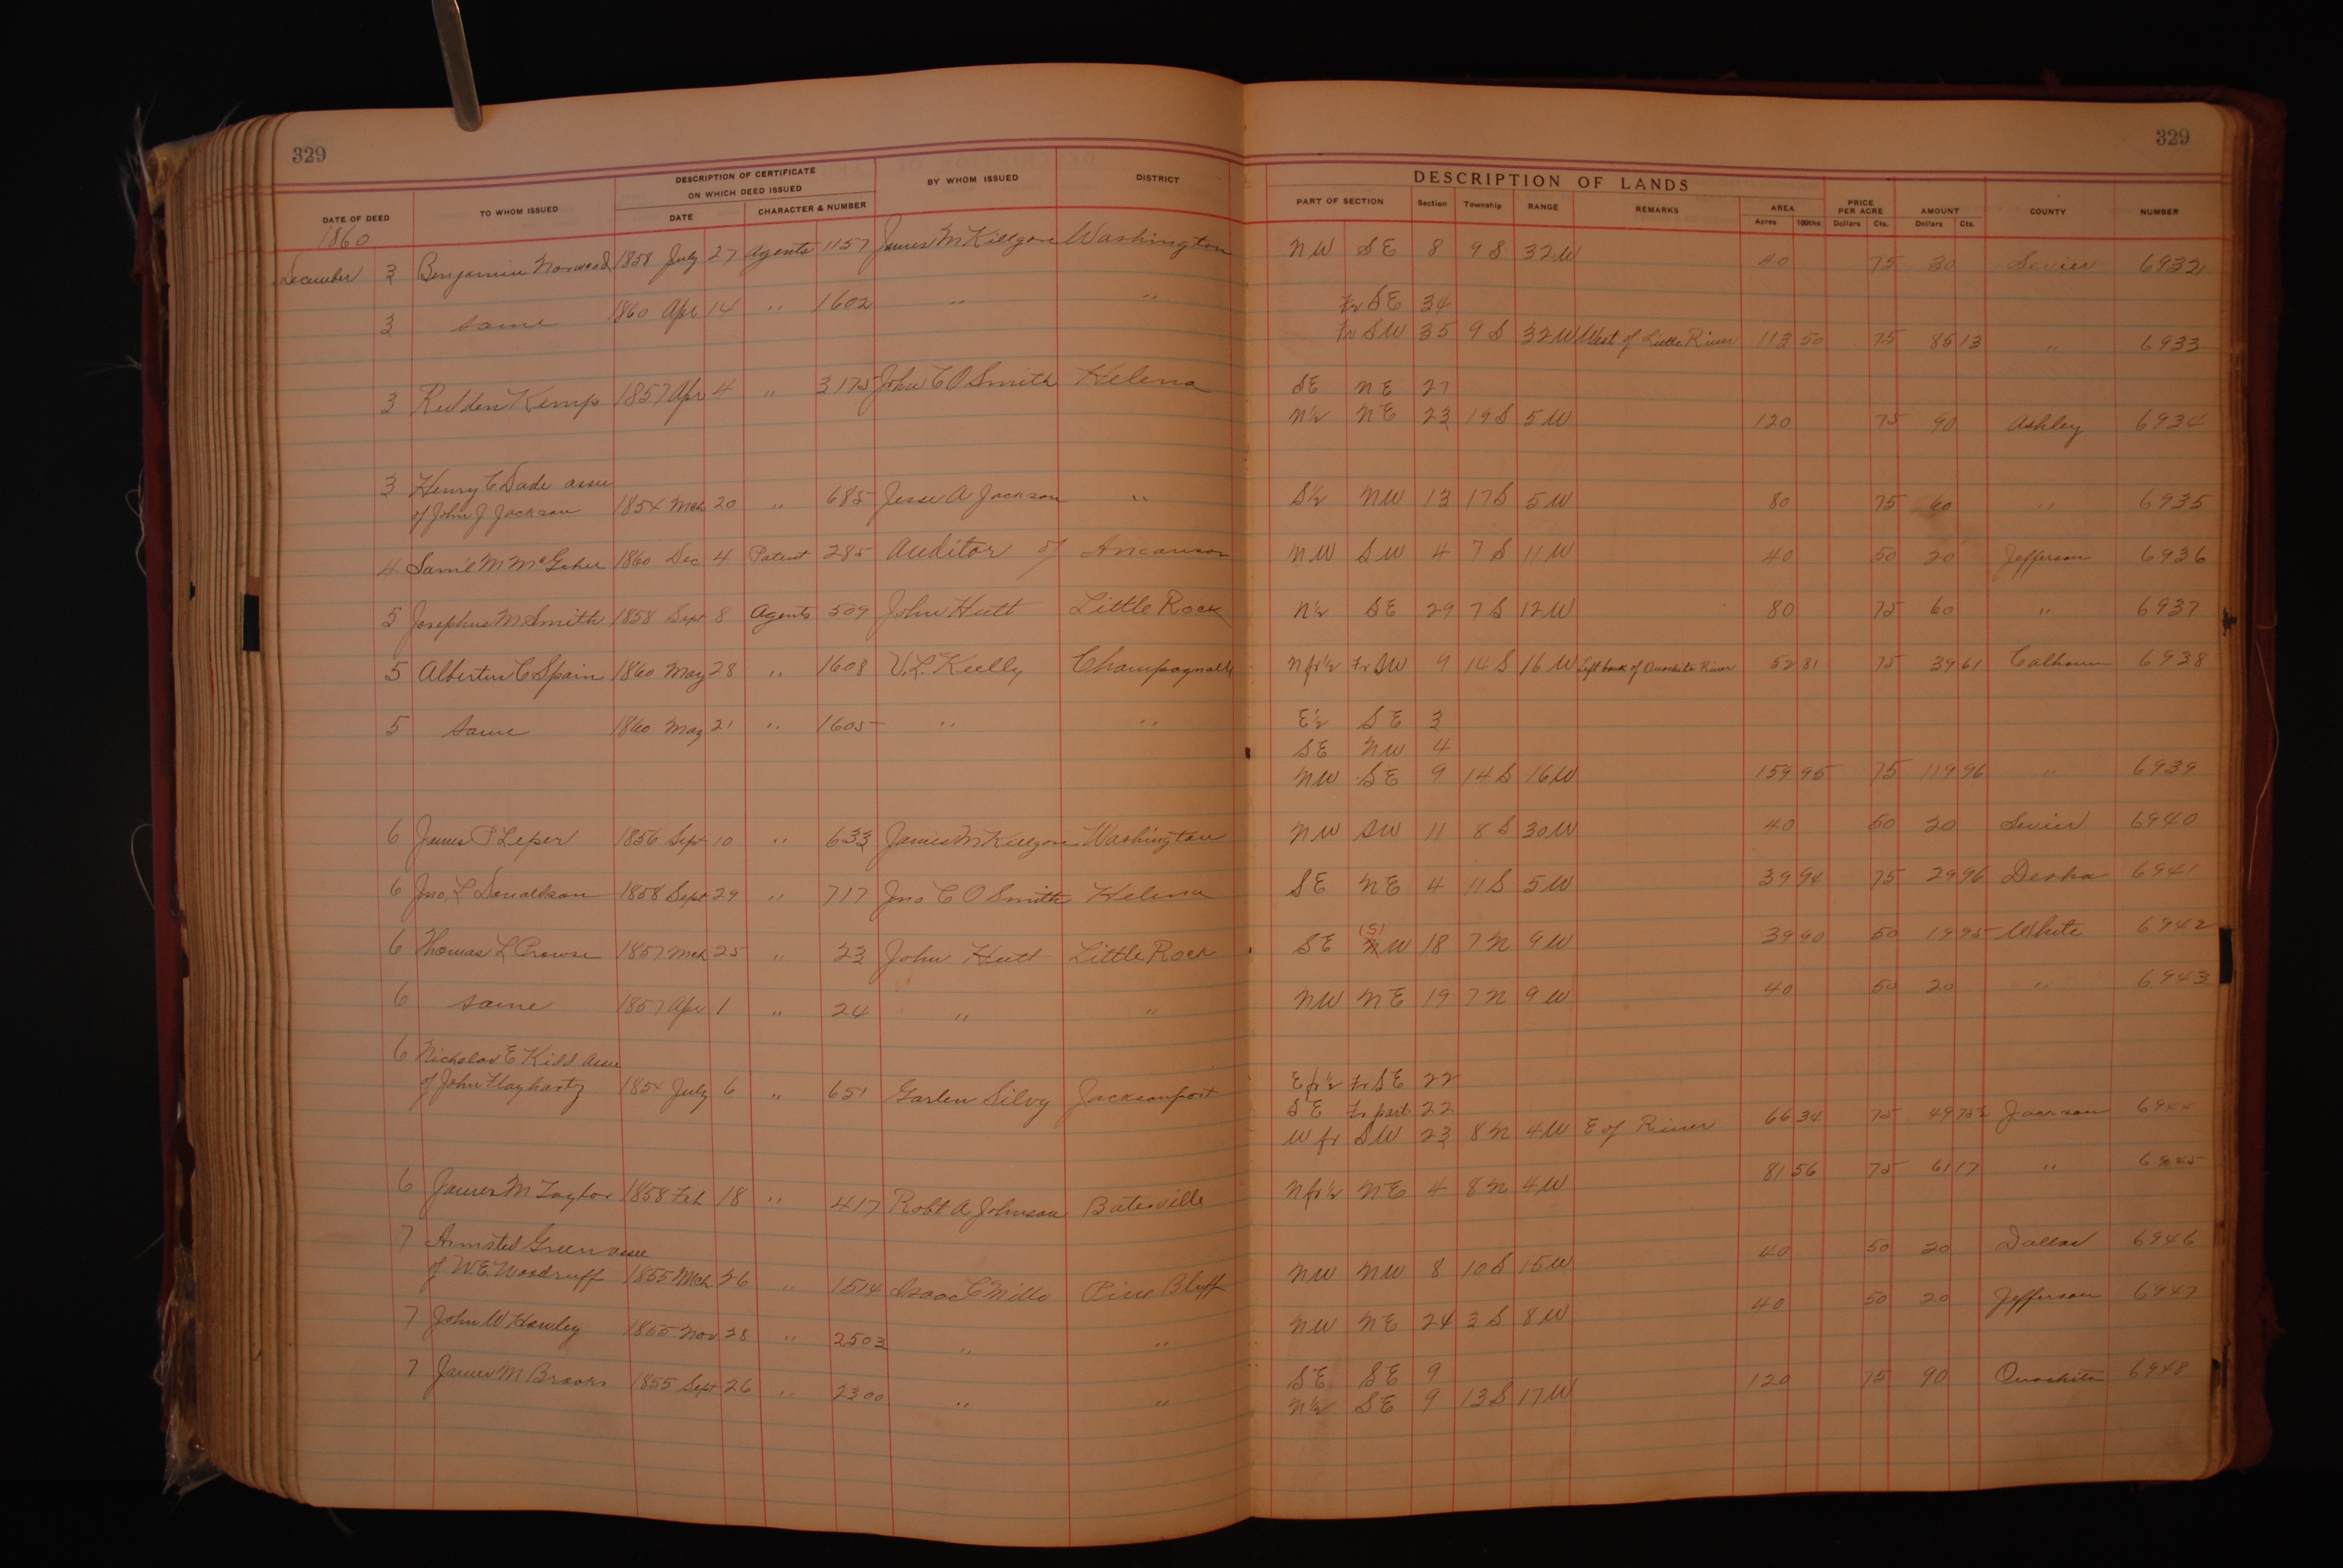 329
329
DESCRIPTION OF CERTIFICATE
ON WHICH DEED ISSUED
BY WHOM ISSUED
DISTRICT
DESCRIPTION OF LANDS
DATE OF DEED
TO WHOM ISSUED
DATE
CHARACTER & NUMBER
PART OF SECTION
Section
Township
RANGE
REMARKS
AREA
Acres 100ths
PRICE PER ACRE
Dollars Cts.
AMOUNT
Dollars Cts.
COUNTY
NUMBER
1860
December 3 Benjamin Norwood 1858 July 27 Agents 1157 James M Killgore Washington NW SE 8 9 S 32 W 40 75 30 Sevier 6932
3 same 1860 Apr 14 " 1602 " " Fr SE 34
Fr SW 35 9 S 32 W West of Little River 113 50 75 85 13 " 6933
3 Redden Kemp 1857 Apr 4 " 3175 John C O Smith Helena SE NE 27
N½ NE 23 19 S 5 W 120 75 90 Ashley 6934
3 Henry C Dade assee
of John J Jackson 1854 Mch 20 " 685 Jesse A Jackson " S½ NW 13 17 S 5 W 80 75 60 " 6935
4 Sam'l M 1860 Dec 4 Patent 285 Auditor of NW SW 4 7 S 11 W 40 50 20 Jefferson 6936
5 Josephus M Smith 1858 Sept 8 Agents 509 John Hutt Little Rock N½ SE 29 7 S 12 W 80 75 60 " 6937
5 Albertus C Spain 1860 May 28 " 1608 V.L. Kelly Champagnolle N fr ½ Fr SW 9 14 S 16 W Left bank of Ouachita River 52 81 75 39 61 Calhoun 6938
5 same 1860 May 21 " 1605 " " E½ SE 3
SE NW 4
NW SE 9 14 S 16 W 159 95 75 119 96 " 6939
6 James P Leper 1856 Sept 10 " 633 James M Killgore Washington NW SW 11 8 S 30 W 40 50 20 Sevier 6940
6 Jno. L Donaldson 1858 Sept 29 " 717 Jno C O Smith Helena SE NE 4 11 S 5 W 39 94 75 29 96 Desha 6941
6 Thomas L Crowse 1857 Mch 25 " 23 John Hutt Little Rock SE (S) NW 18 7 N 9 W 39 90 50 19 95 White 6942
6 same 1857 Apr 1 " 24 " " NW NE 19 7 N 9 W 40 50 20 " 6943
6 Nicholas E Kidd Assee
of John Flayharty 1854 July 6 " 651 Garlen Silvy Jacksonport E fr ½ Fr SE 22
SE Fr part 22
W fr SW 23 8 N 4 W E of River 66 34 75 49 75½ Jackson 6944
6 James M Taylor 1858 Feb 18 " 417 Robt A Johnson Batesville N fr ½ NE 4 8 N 4 W 81 56 75 61 17 " 6945
7 Armsted Green assee
of W.E. Woodruff 1855 Mch 26 " 1514 Isaac C Mills Pine Bluff NW NW 8 10 S 15 W 40 50 20 Dallas 6946
7 John W Hawley 1855 Nov 28 " 2503 " " NW NE 24 3 S 8 W 40 50 20 Jefferson 6947
7 James M Brooks 1855 Sept 26 " 2300 " " SE SE 9
N½ SE 9 13 S 17 W 120 75 90 Ouachita 6948